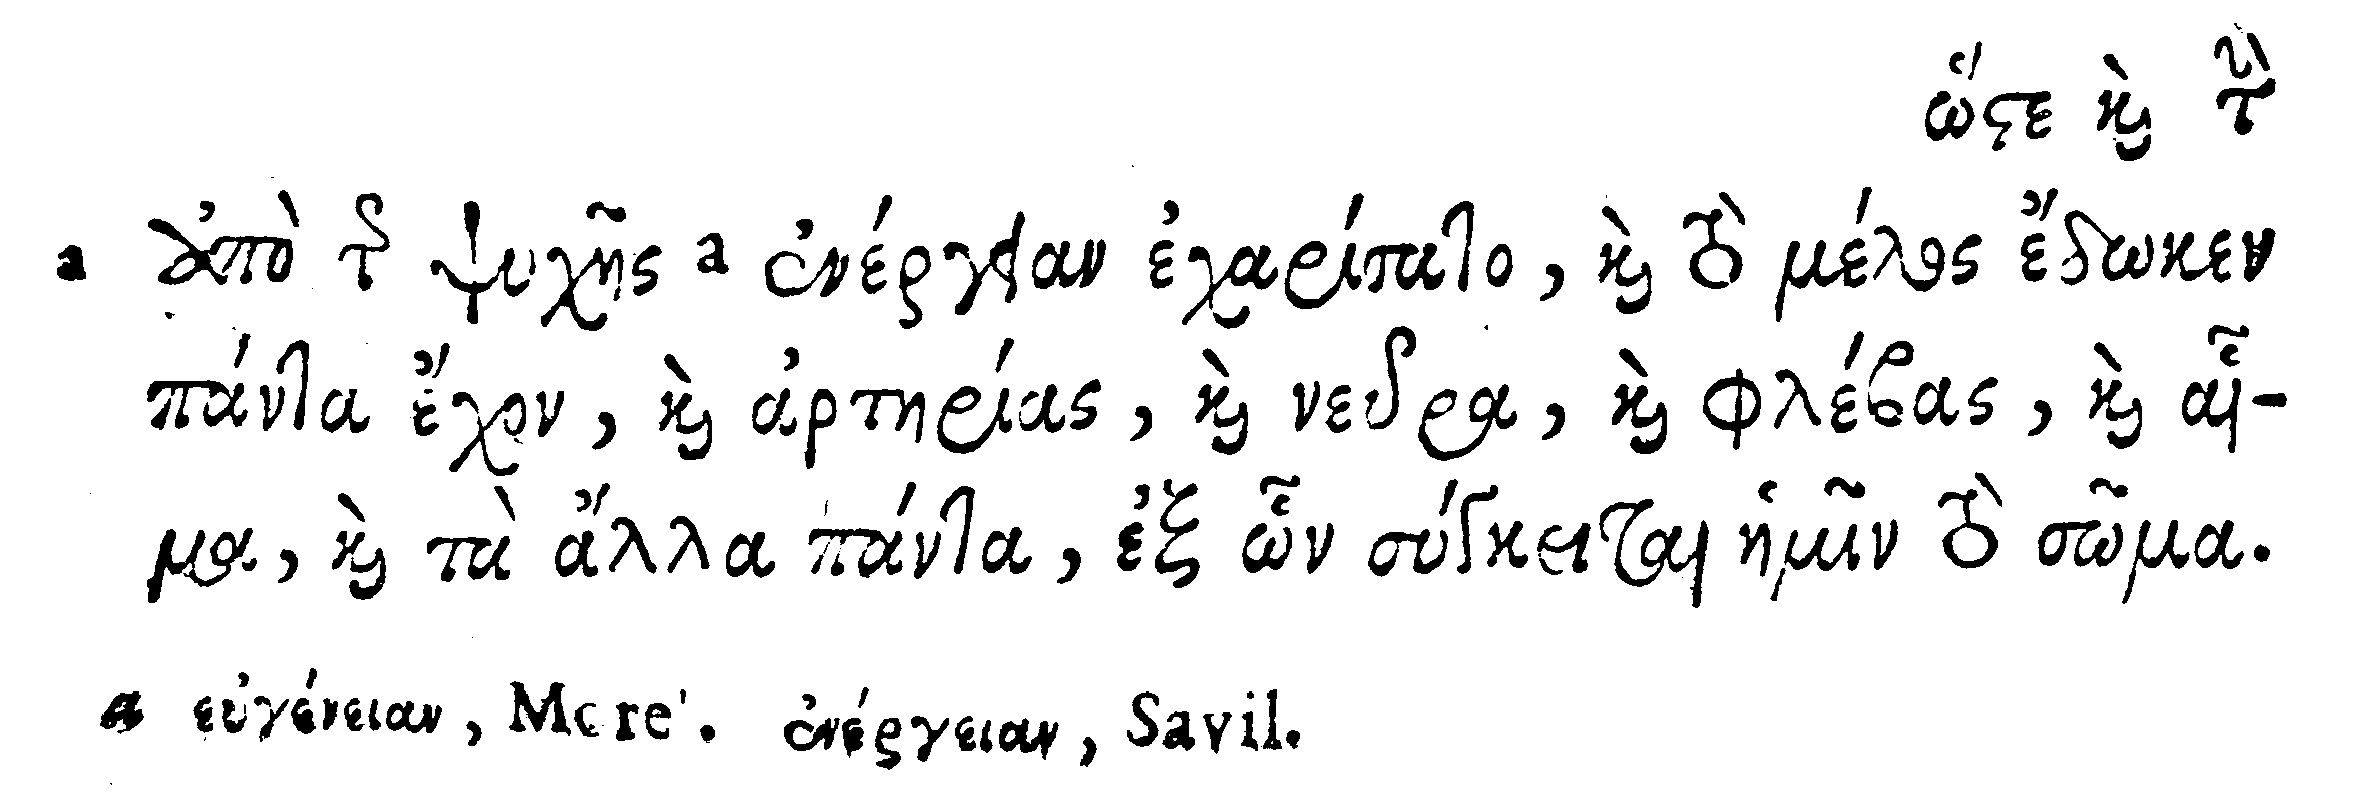 ὥστε καὶ τὴν
a ἀπὸ τῆς ψυχῆς a ἐνέργειαν ἐχαρίσατο, καὶ τὸ μέλος ἔδωκεν
πάντα ἔχον, καὶ ἀρτηρίας, καὶ νεῦρα, καὶ φλέβας, καὶ αἷ-
μα, καὶ τὰ ἄλλα πάντα, ἐξ ὧν σύγκειται ἡμῖν τὸ σῶμα.
a εὐγένειαν, Morel. ἐνέργειαν, Savil.